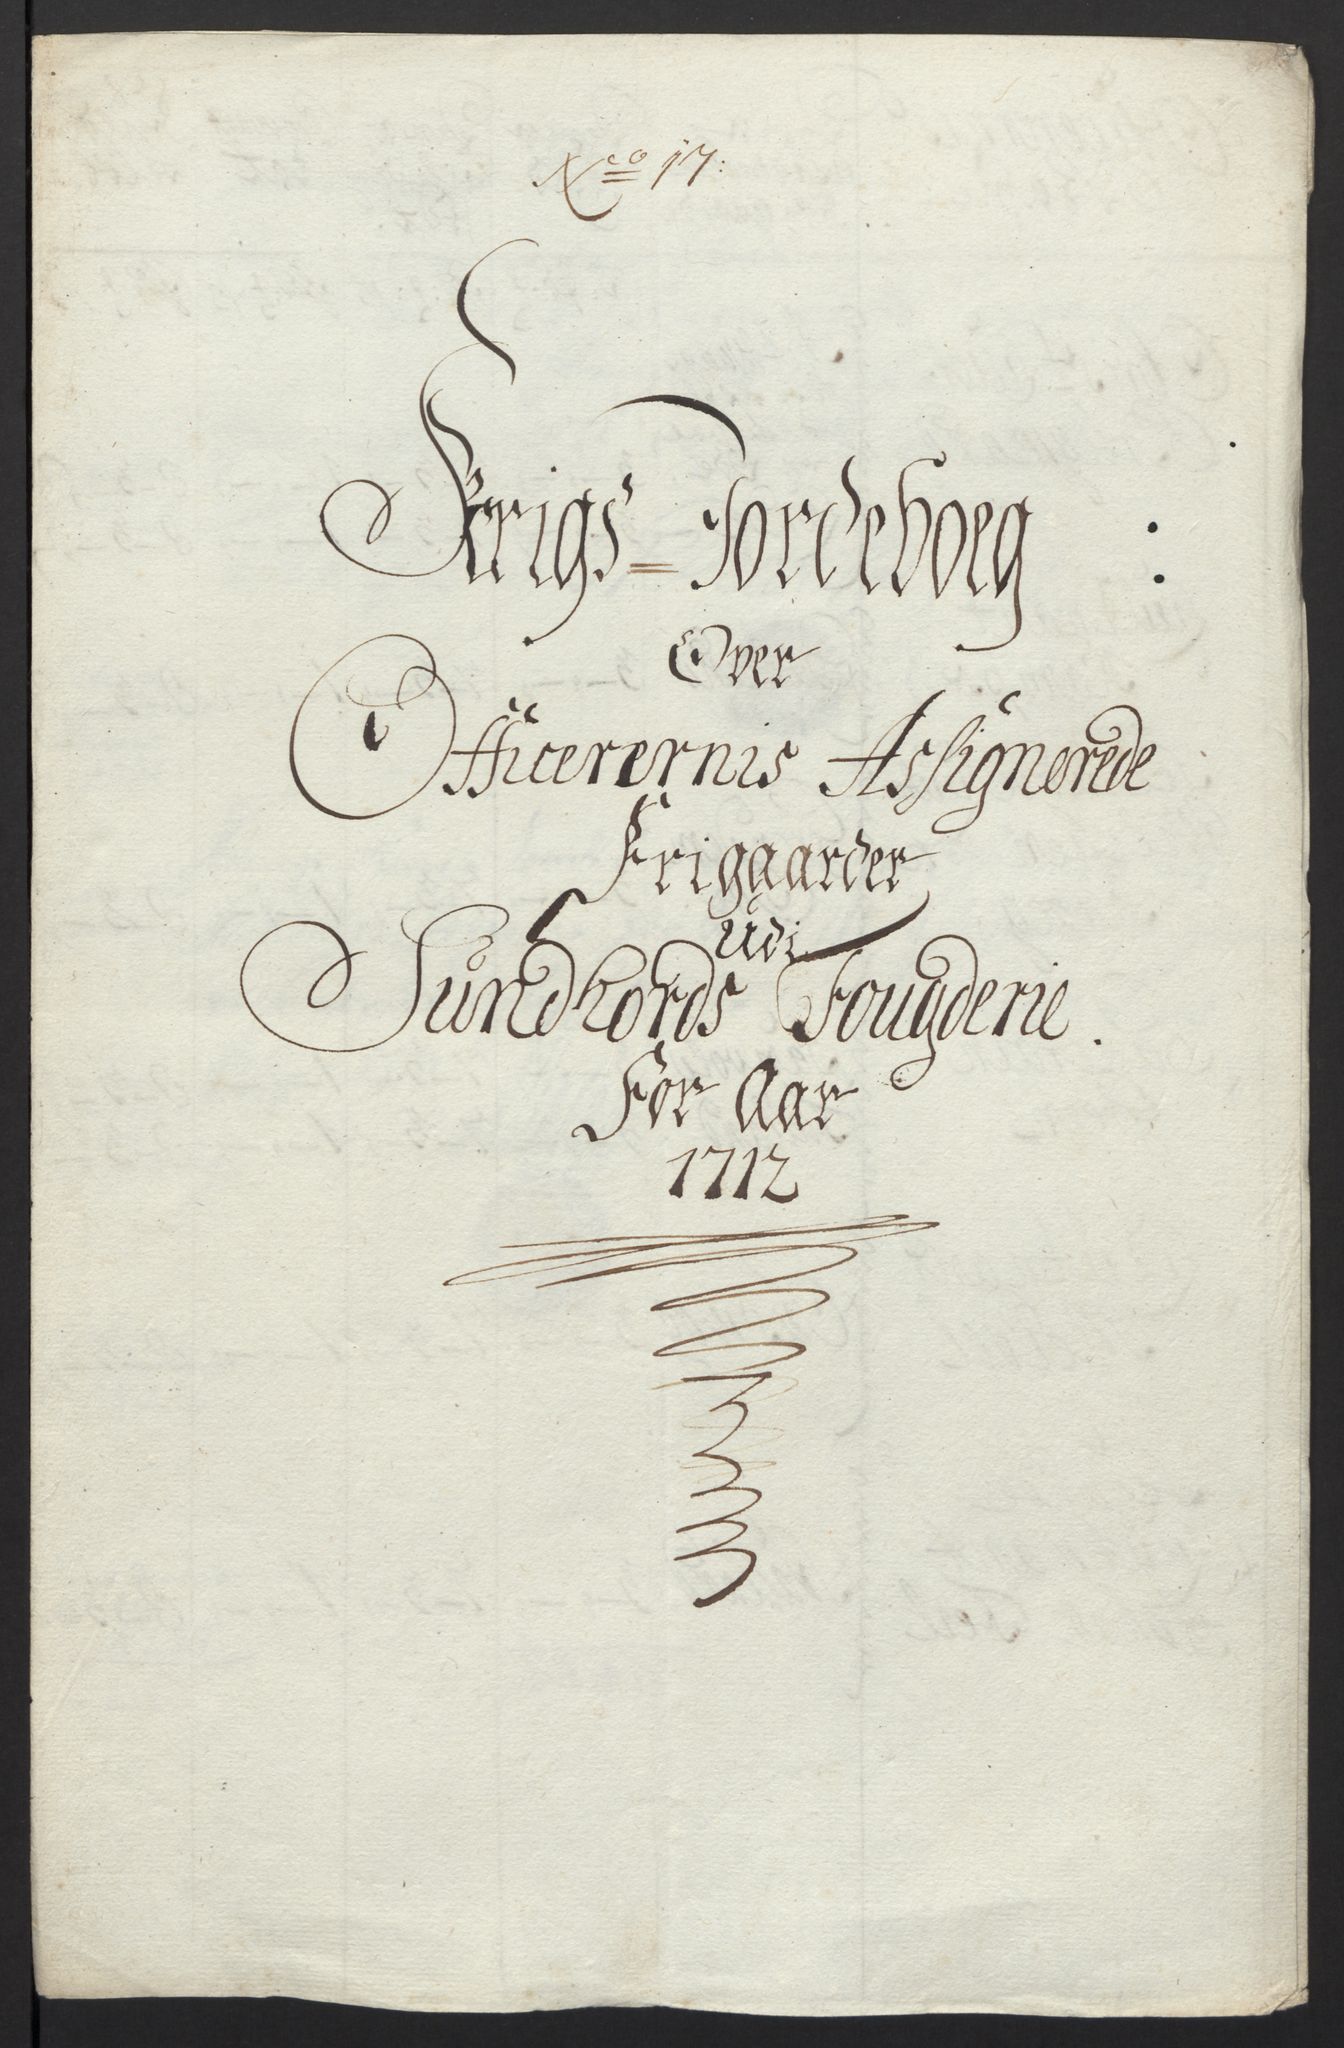 Nco 17:
Krigs-Jordeboeg
Over
Officerernis Assignerede
Frigaarder
Udi
Sundhords Fougderie.
For Aar
1712